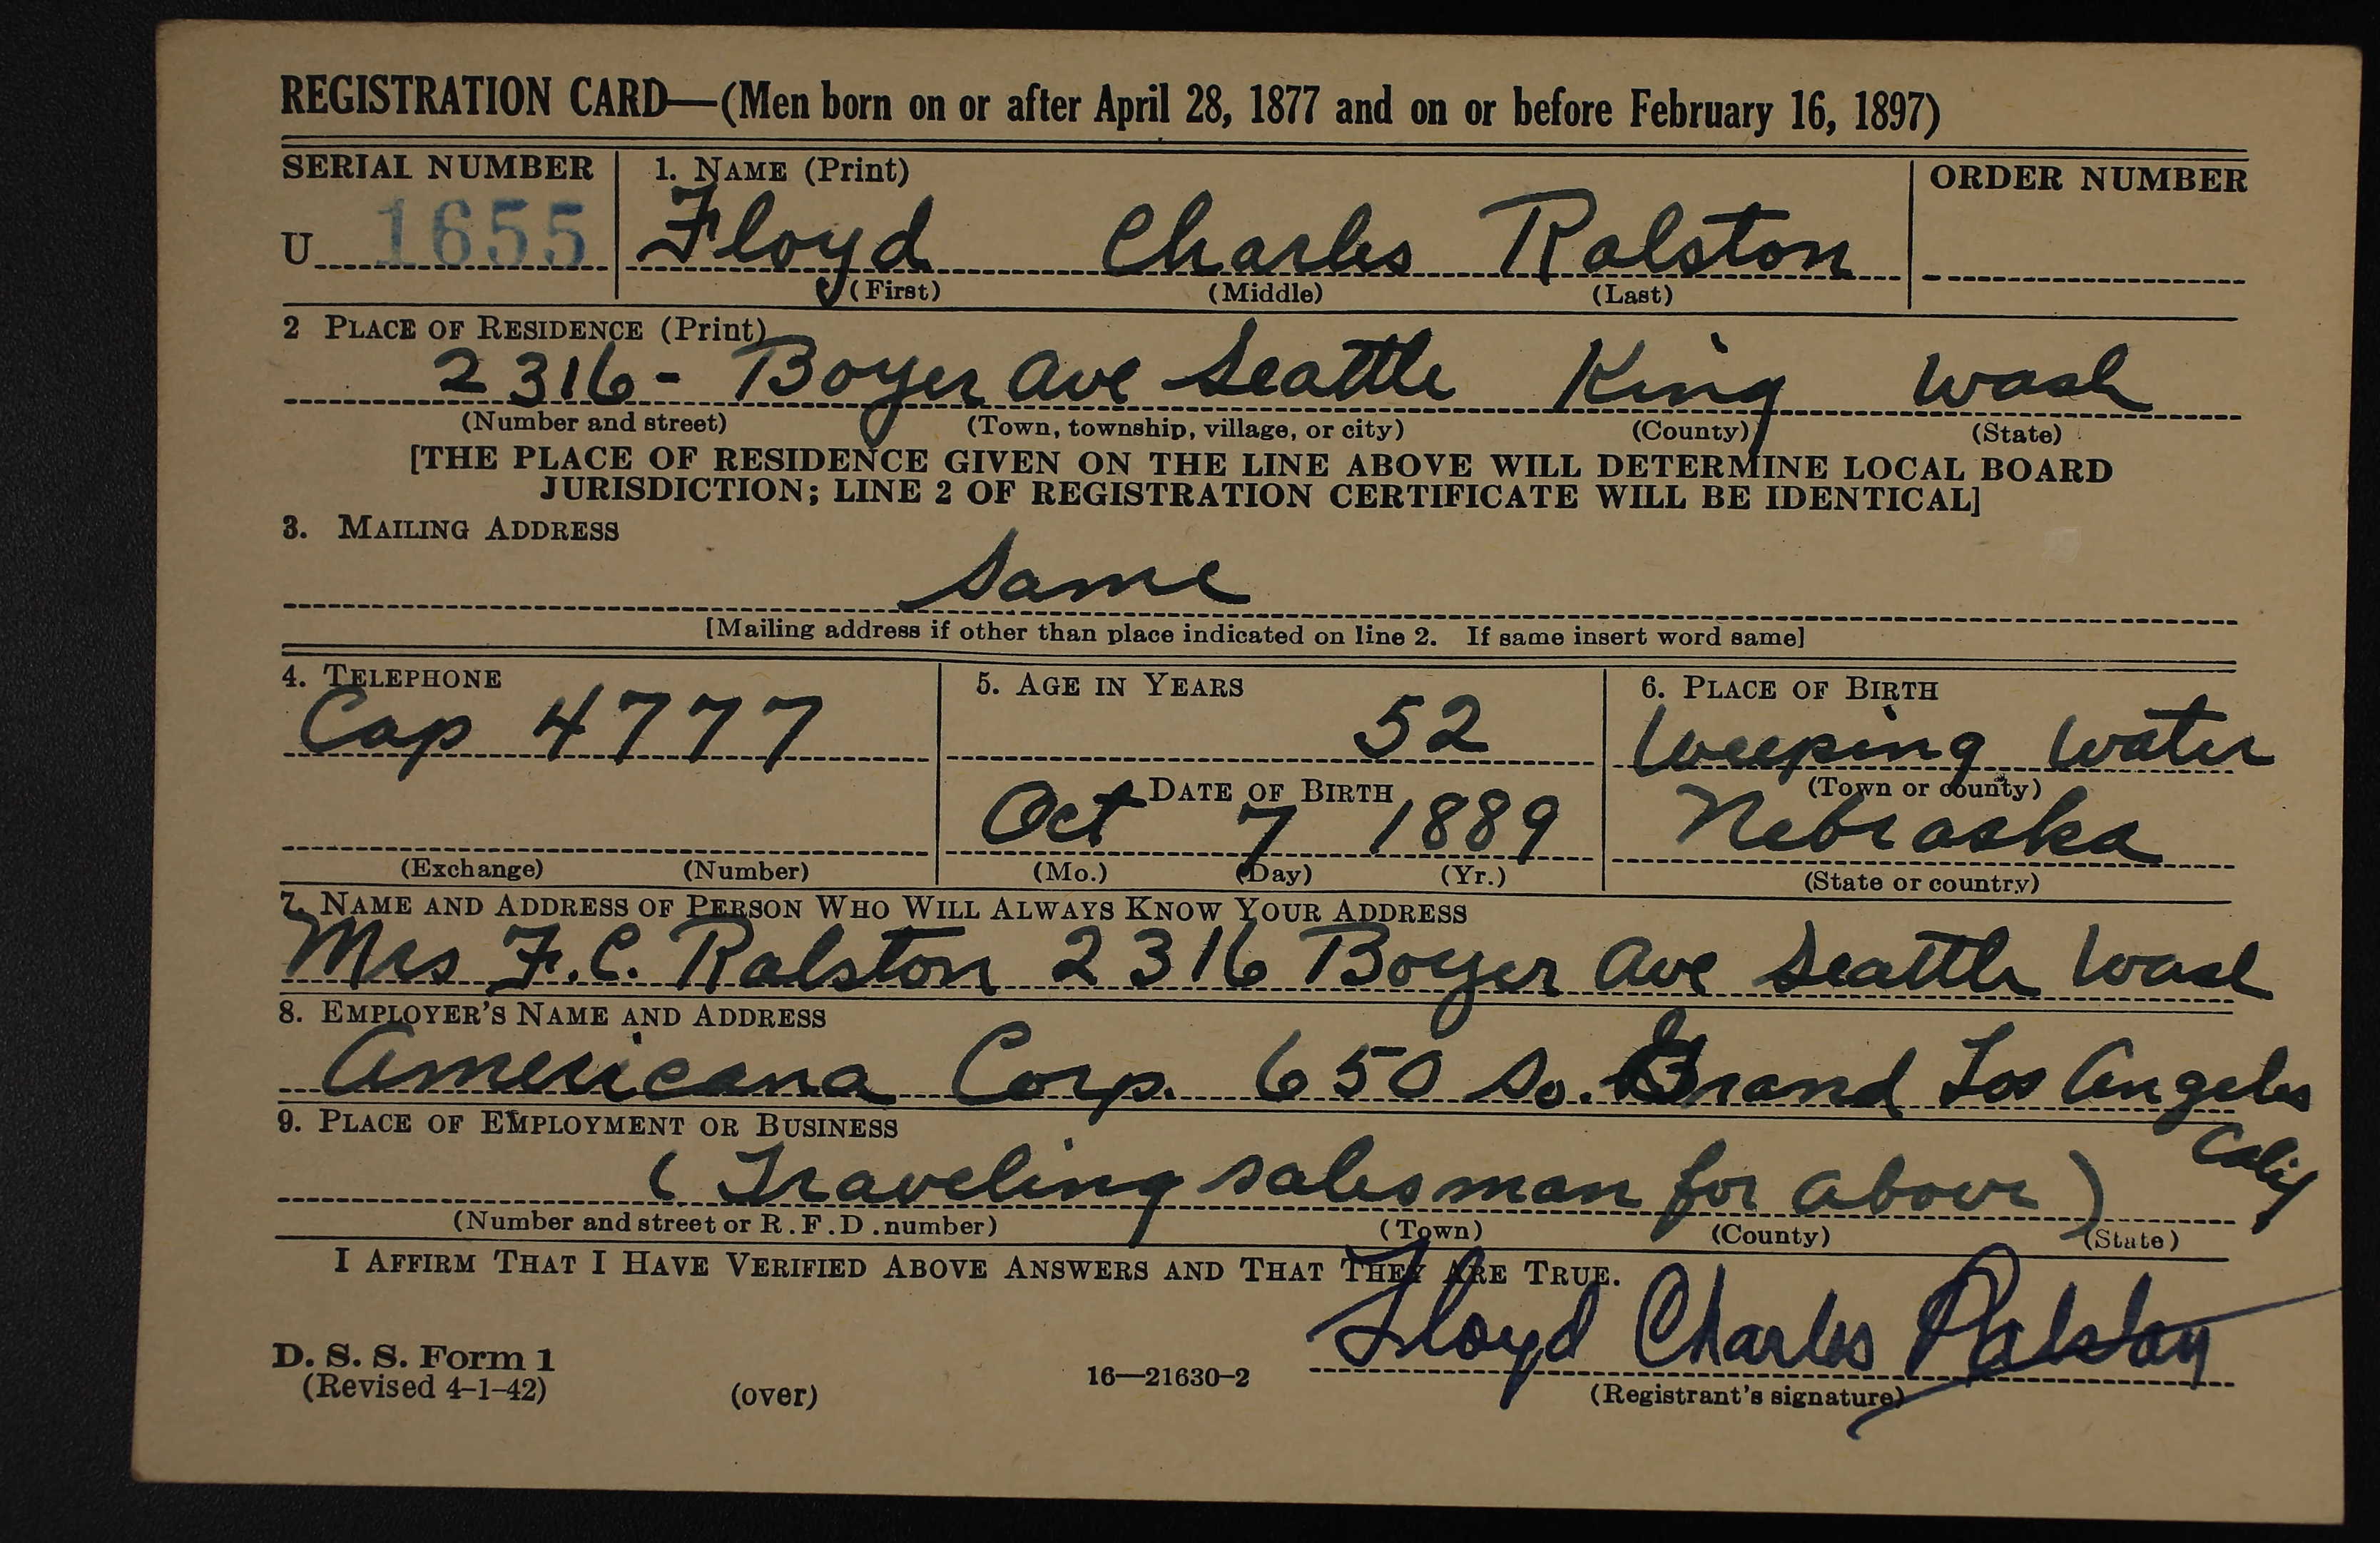 REGISTRATION CARD—(Men born on or after April 28, 1877 and on or before February 16, 1897)
SERIAL NUMBER
1. NAME (Print)
ORDER NUMBER
U 1655
Floyd Charles Ralston
(First) (Middle) (Last)
2 PLACE OF RESIDENCE (Print)
2316- Boyer Ave Seattle King Wash
(Number and street) (Town, township, village, or city) (County) (State)
[THE PLACE OF RESIDENCE GIVEN ON THE LINE ABOVE WILL DETERMINE LOCAL BOARD
JURISDICTION; LINE 2 OF REGISTRATION CERTIFICATE WILL BE IDENTICAL]
3. MAILING ADDRESS
Same
[Mailing address if other than place indicated on line 2. If same insert word same]
4. TELEPHONE
Cap 4777
(Exchange) (Number)
5. AGE IN YEARS
52
DATE OF BIRTH
Oct 7 1889
(Mo.) (Day) (Yr.)
6. PLACE OF BIRTH
Weeping Water
(Town or county)
Nebraska
(State or country)
7. NAME AND ADDRESS OF PERSON WHO WILL ALWAYS KNOW YOUR ADDRESS
Mrs F.C. Ralston 2316 Boyer Ave Seattle Wash
8. EMPLOYER'S NAME AND ADDRESS
Americana Corp. 650 So. Grand Los Angeles
Calif
9. PLACE OF EMPLOYMENT OR BUSINESS
(Traveling salesman for above)
(Number and street or R.F.D. number) (Town) (County) (State)
I AFFIRM THAT I HAVE VERIFIED ABOVE ANSWERS AND THAT THEY ARE TRUE.
Floyd Charles Ralston
(Registrant's signature)
D. S. S. Form 1
(Revised 4-1-42)
(over)
16—21630-2